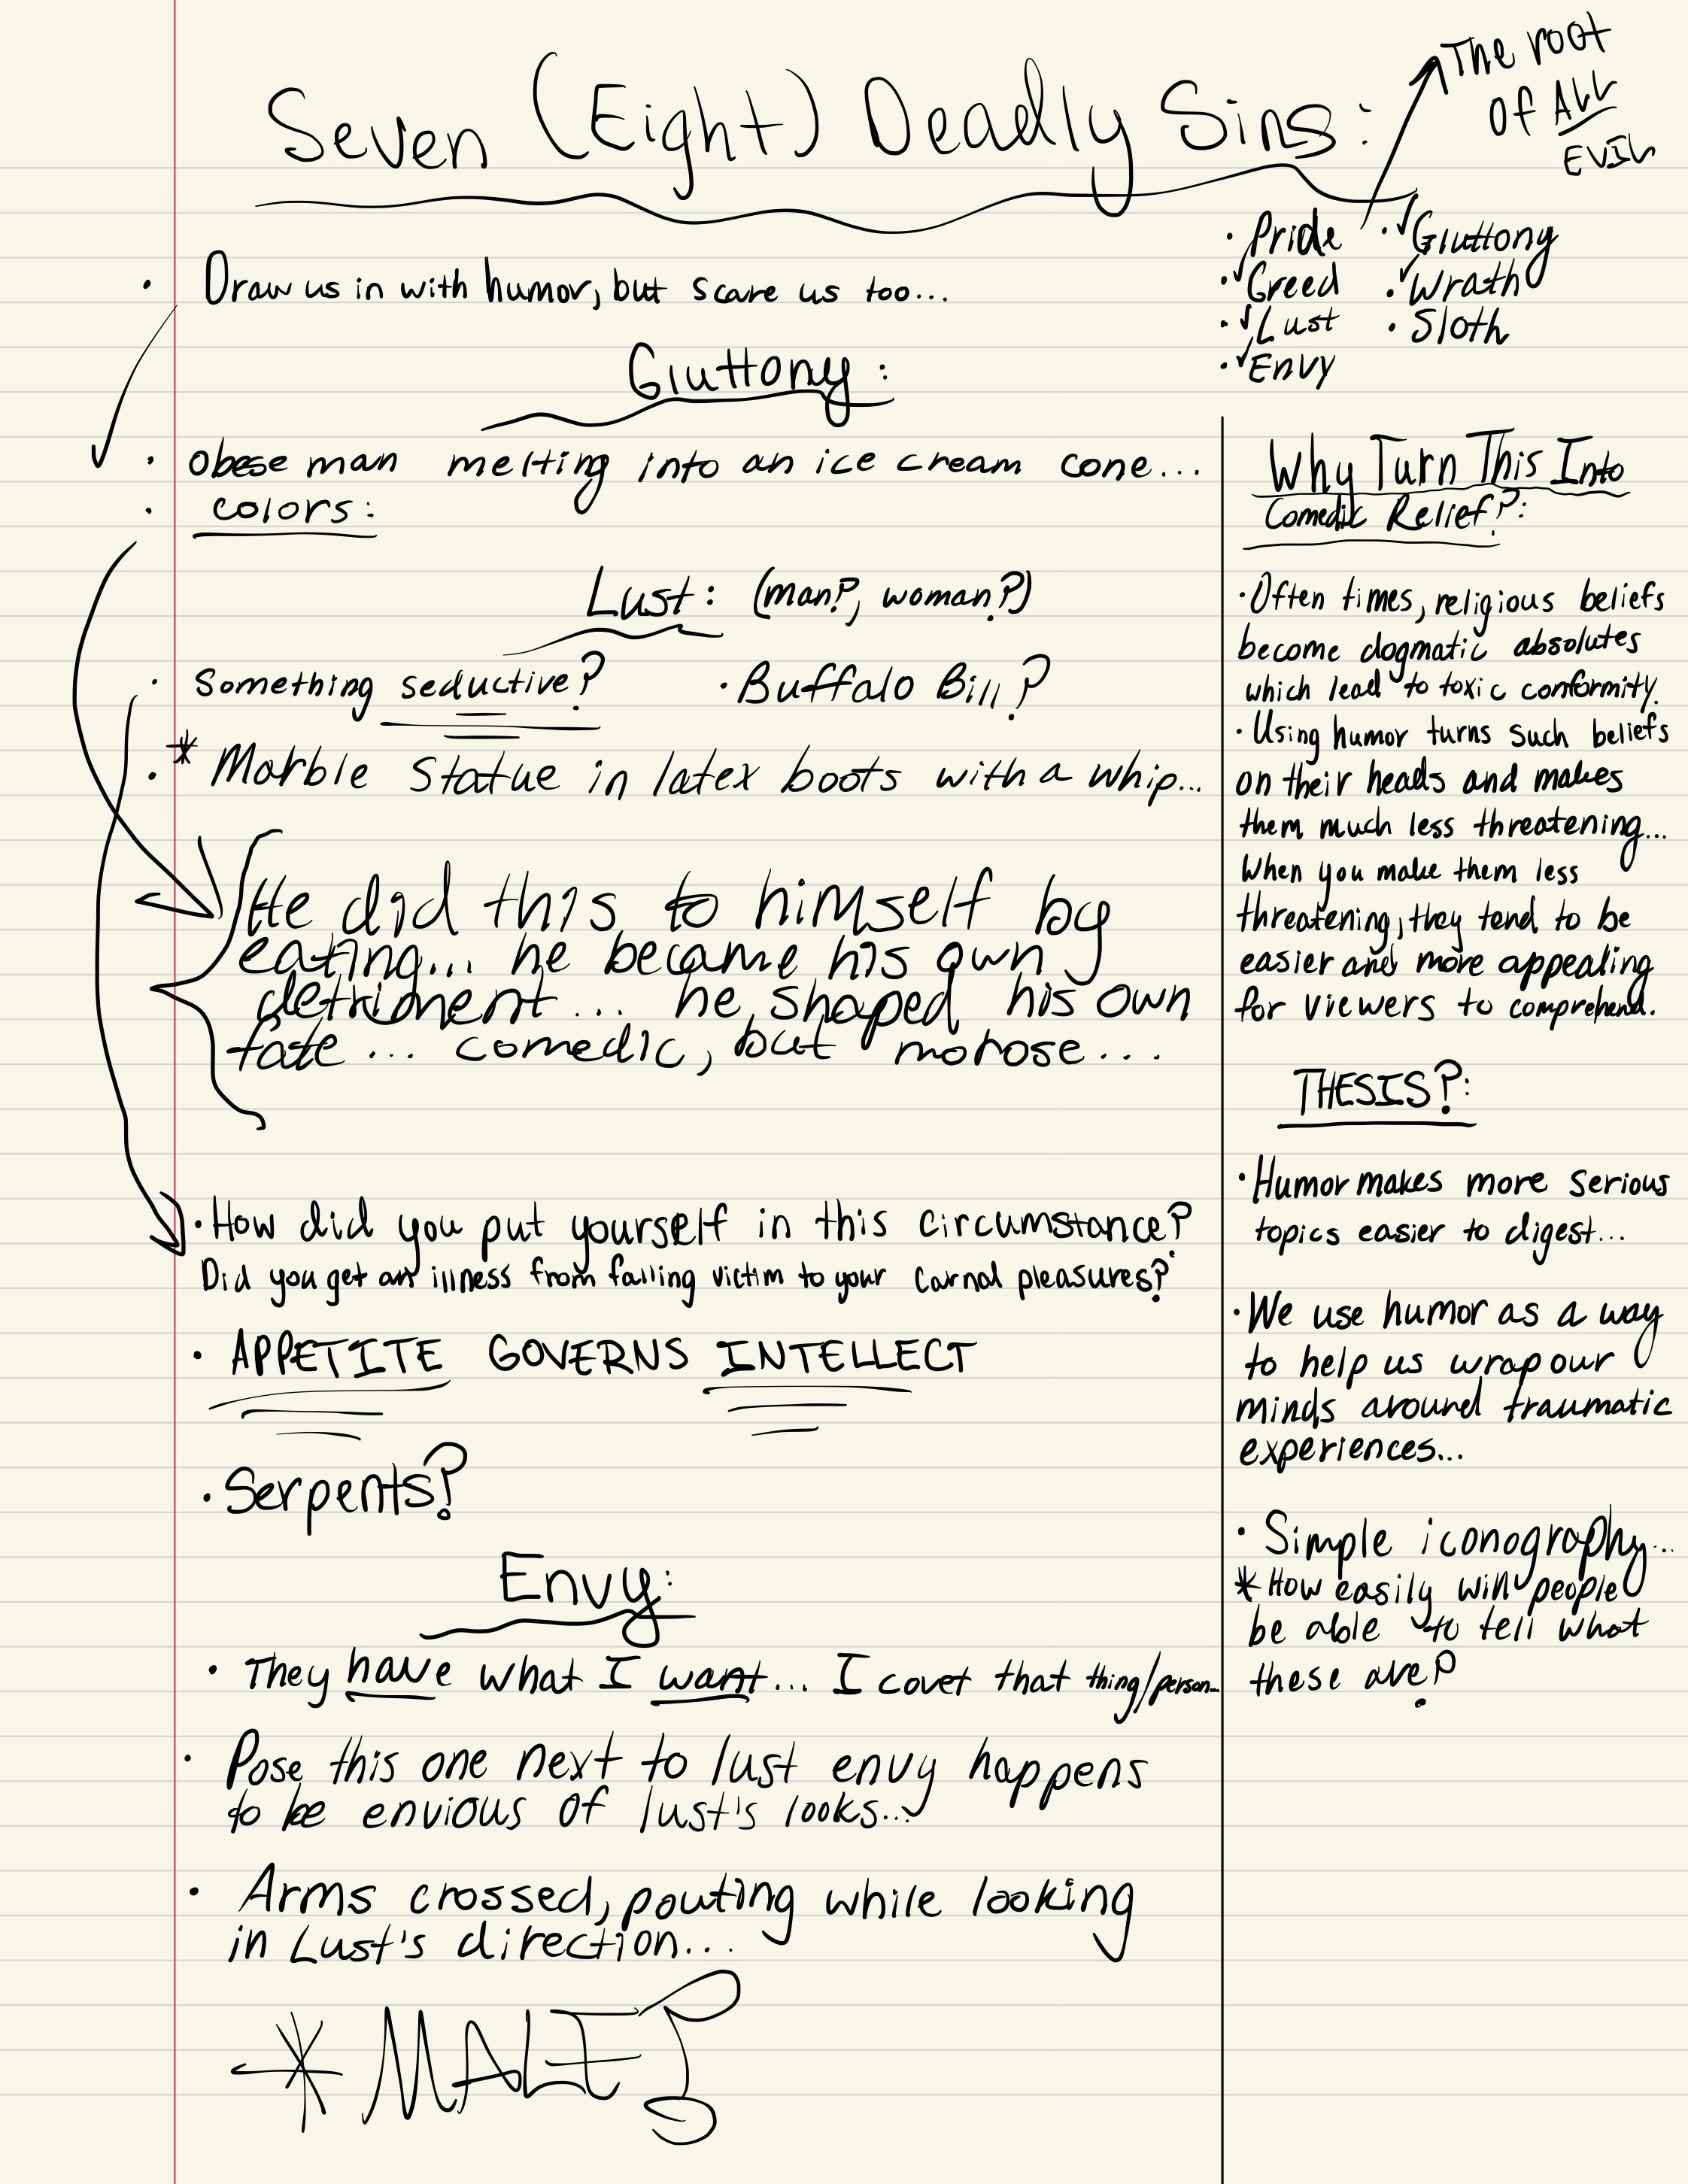 Seven (Eight) Deadly Sins:
The root
of ALL
EVIL
• Pride • ✓Gluttony
• ✓Greed • ✓Wrath
• ✓Lust • Sloth
• ✓Envy
• Draw us in with humor, but scare us too...
Gluttony:
• obese man melting into an ice cream cone...
• colors:
Lust: (man?, woman?)
• Something seductive? • Buffalo Bill?
• * Marble Statue in latex boots with a whip...
He did this to himself by
eating... he became his own
detriment... he shaped his own
fate... comedic, but morose...
• How did you put yourself in this circumstance?
Did you get an illness from falling victim to your carnal pleasures?
• APPETITE GOVERNS INTELLECT
• Serpents?
Envy:
• They have what I want... I covet that thing/person...
• Pose this one next to lust envy happens
to be envious of lust's looks...
• Arms crossed, pouting while looking
in Lust's direction...
* MALE?
Why Turn This Into
Comedic Relief?:
• Often times, religious beliefs
become dogmatic absolutes
which lead to toxic conformity.
• Using humor turns such beliefs
on their heads and makes
them much less threatening...
When you make them less
threatening, they tend to be
easier and more appealing
for viewers to comprehend.
THESIS?:
• Humor makes more serious
topics easier to digest...
• We use humor as a way
to help us wrap our
minds around traumatic
experiences...
• Simple iconography...
* How easily will people
be able to tell what
these are?